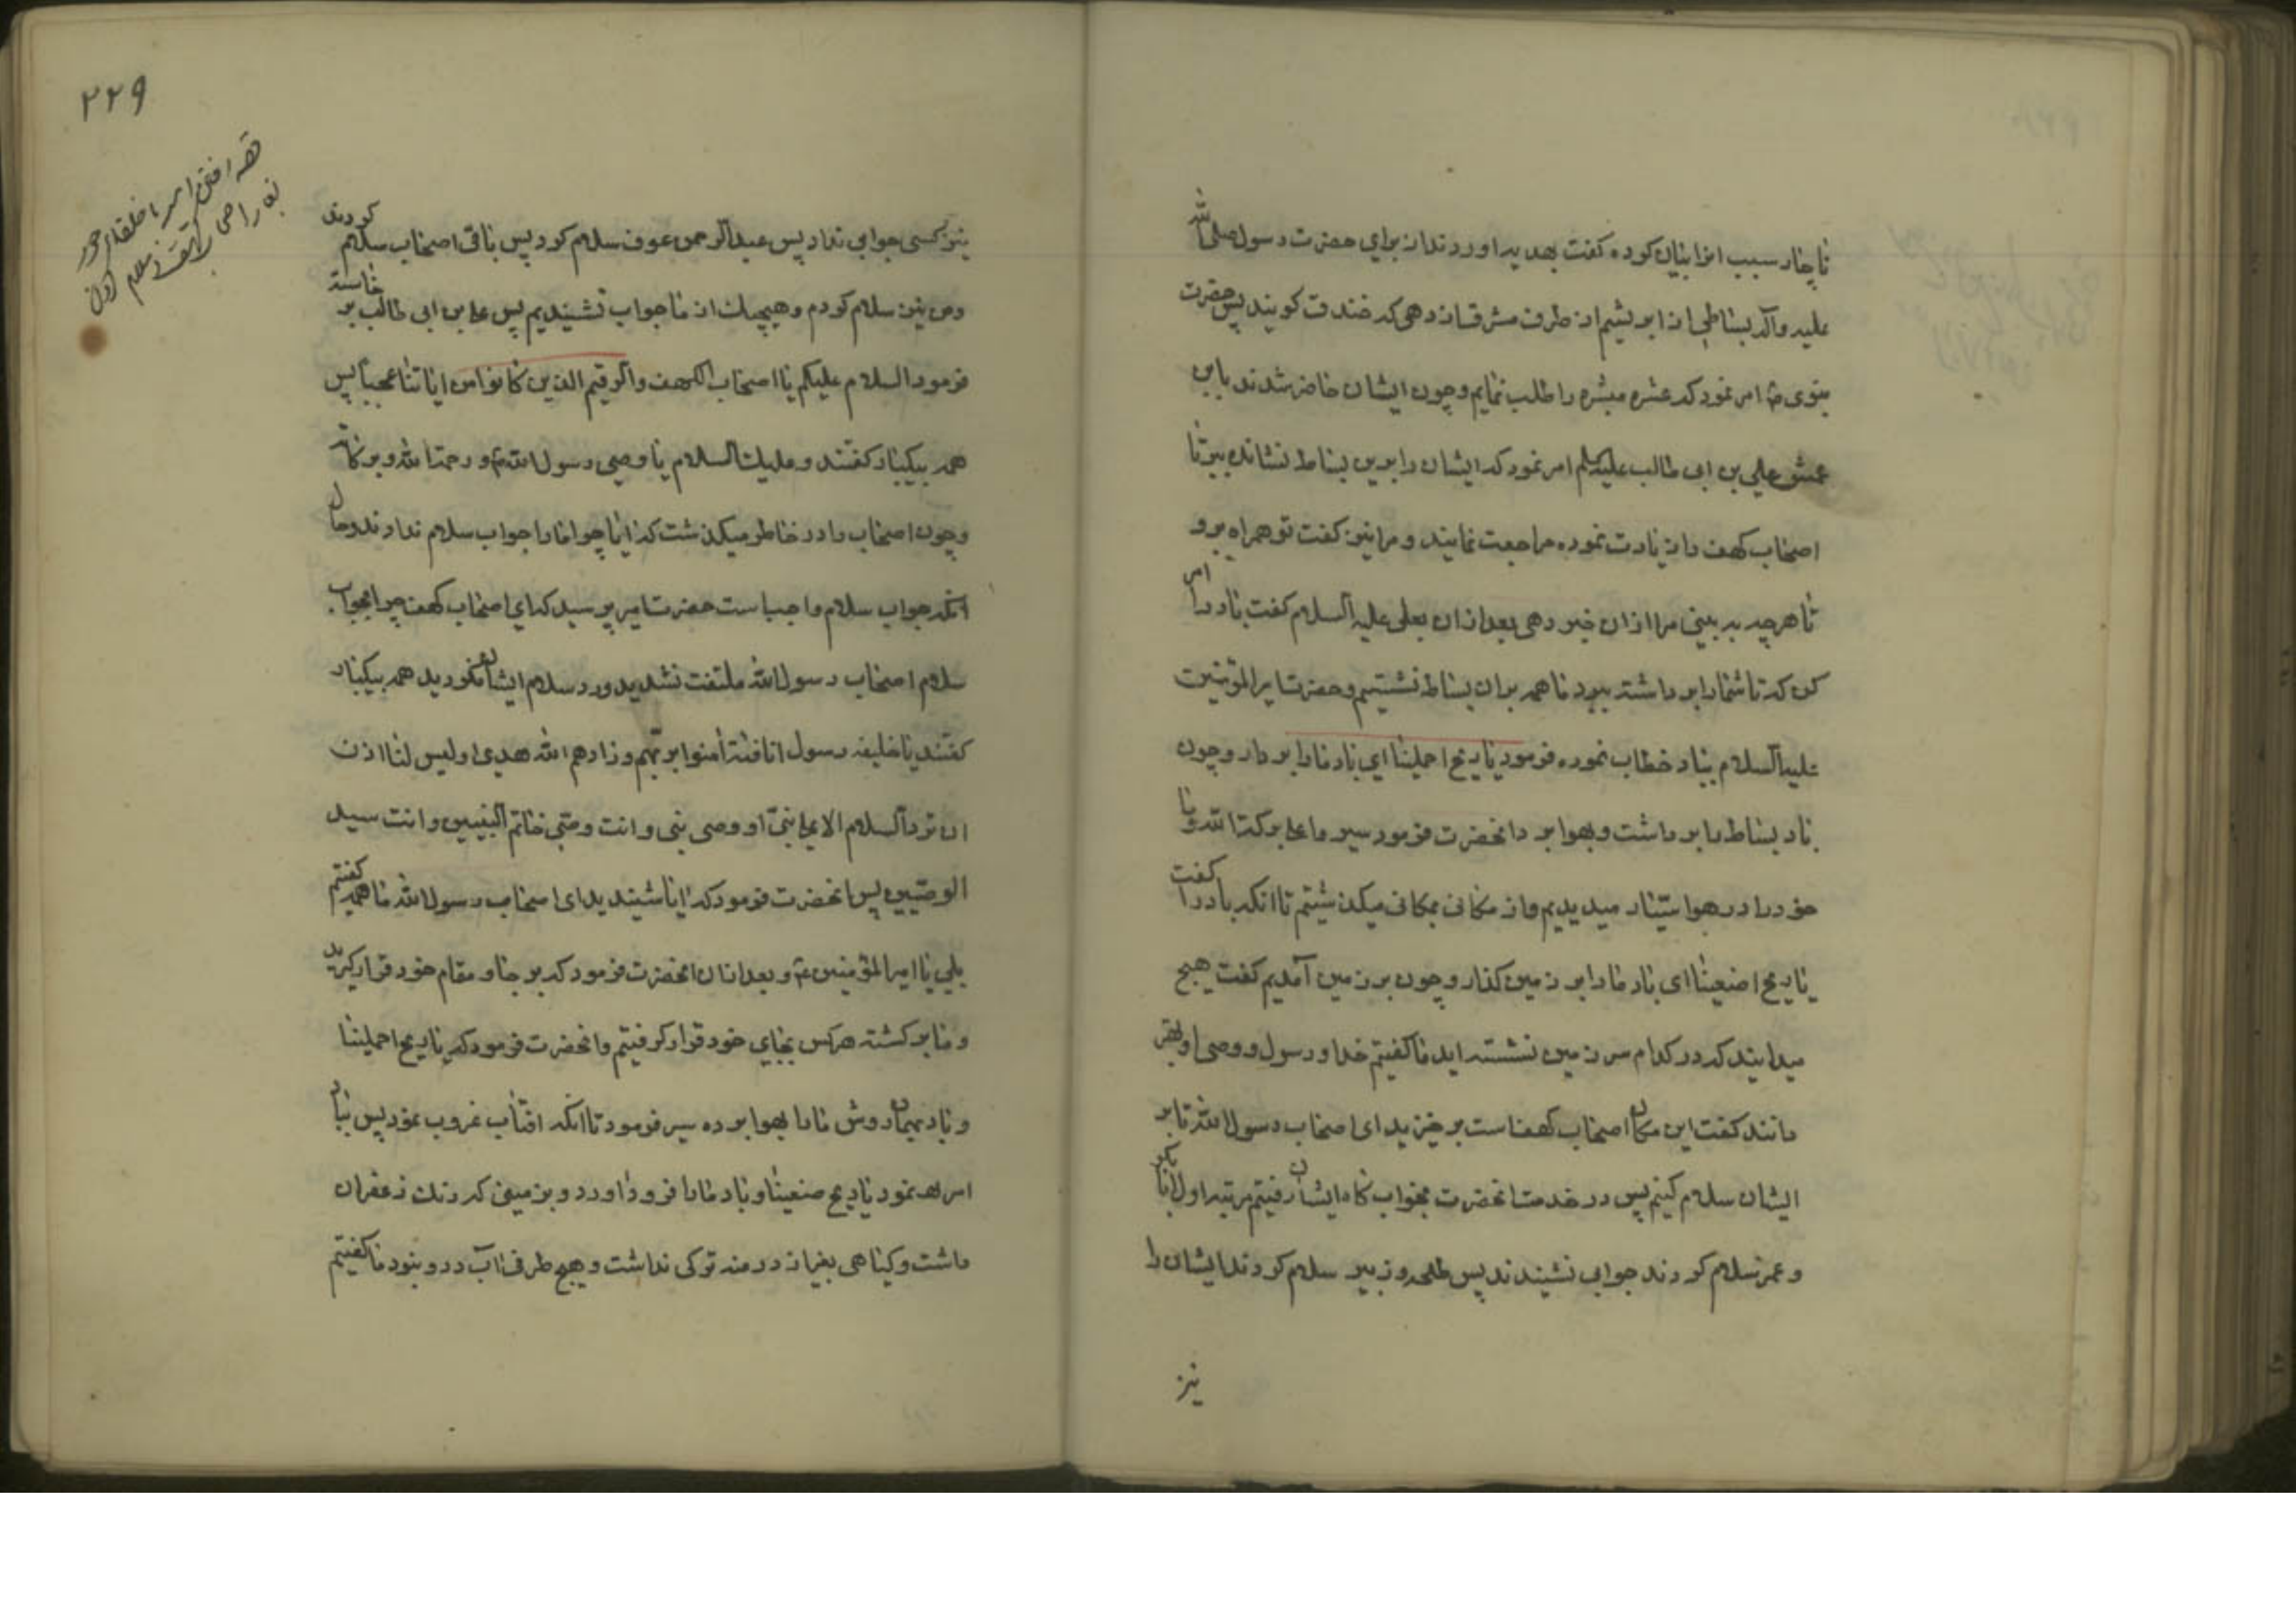 ناچار سبب انرا بیان کرده گفت بهدیه اوردند از برای حضرت رسول صلی الله
علیه وآله بساطی از ابریشم از طرف مشرق از دهی که خندق گویند پس حضرت
نبوی ص امر نمود که عشره مبشره را طلب نمایم وچون ایشان حاضر شدند باین
عمش علی بن ابی طالب علیه السلام امر نمود که ایشان را برین بساط نشانده ببر تا
اصحاب کهف را زیارت نموده مراجعت نمایند و مرا نیز گفت تو همراه برو
تا هرچه به بینی مرا ازان خبر دهی بعد ازان بعلی علیه السلام گفت باد را امر
کن که تا شما را برداشته ببرد ما همه بران بساط نشستیم وحضرت امیر المؤمنین
علیه السلام بباد خطاب نموده فرمود یا ریح احملینا ای باد ما را بردار وچون
باد بساط را برداشت وبهوا برد انحضرت فرمود سیروا علی برکة الله وما
خود را در هوا سیار میدیدیم واز مکانی بمکانی میگذشتیم تا انکه باد را گفت
یا ریح اضعینا ای باد ما را بر زمین گذار وچون بر زمین آمدیم گفت هیچ
میدانید که در کدام سر زمین نشسته اید ما گفتیم خدا و رسول و وصی او بهتر
دانند گفت این مکان اصحاب کهف است برخیزید ای اصحاب رسول الله تا بر
ایشان سلام کنیم پس در خدمت انحضرت بخوابگاه ایشان رفتیم مرتبه اول ابابکر
و عمر سلام کردند جوابی نشیندند پس طلحه و زبیر سلام کردند ایشان را
نیز
٢٢٩
نیز کسی جوابی نداد پس عبد الرحمن عوف سلام کرد پس باقی اصحاب سلام کردند
ومن نیز سلام کردم و هیچیک از ما جواب نشیندیم پس علی بن ابی طالب بر خاسته
فرمود السلام علیکم یا اصحاب الکهف والرقیم الذین کانوا من ایاتنا عجبا پس
همه بیکبار گفتند و علیک السلام یا وصی رسول الله ص و رحمة الله وبرکاته
وچون اصحاب را در خاطر میگذشت که ایا چرا ما را جواب سلام ندادند وحال
انکه جواب سلام واجب است حضرت امیر پرسید که ای اصحاب کهف چرا بجواب
سلام اصحاب رسول الله ملتفت نشدید ورد سلام ایشان نکردید همه بیکبار
گفتند یا خلیفه رسول انا فتیة آمنوا بربهم وزادهم الله هدی اولیس لنا اذن
ان نرد السلام الا علی نبی او وصی نبی و انت وصی خاتم النبیین و انت سید
الوصیین پس انحضرت فرمود که ایا شیندید ای اصحاب رسول الله ما همه گفتیم
بلی یا امیر المؤمنین ع و بعد ازان انحضرت فرمود که بر جا و مقام خود قرار گیرید
و ما برگشته هرکس بجای خود قرار گرفتیم وانحضرت فرمود که یا ریح احملینا
و باد بهمان روش ما را بهوا برده سیر فرمود تا انکه افتاب غروب نمود پس باد
امر نمود یا ریح ضعینا و باد ما را فرود اورد و بزمینی که رنگ زعفران
داشت وگیاهی بغیر از درمنه ترکی نداشت و هیچ طرف اب درو نبود ما گفتیم